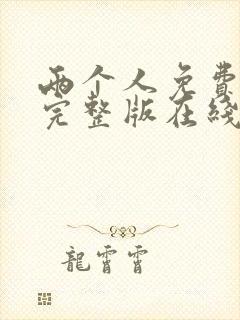 两个人免費
完整版在綫
龍霄霄